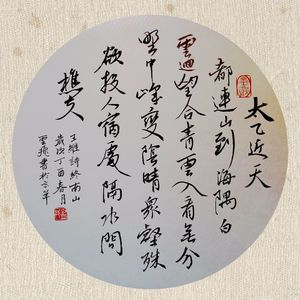 太乙近天
都連山到海隅白
雲迴望合青靄入看無分
野中峰變陰晴眾壑殊
欲投人宿處隔水問
樵夫
王維詩終南山
歲次丁酉春月
書於